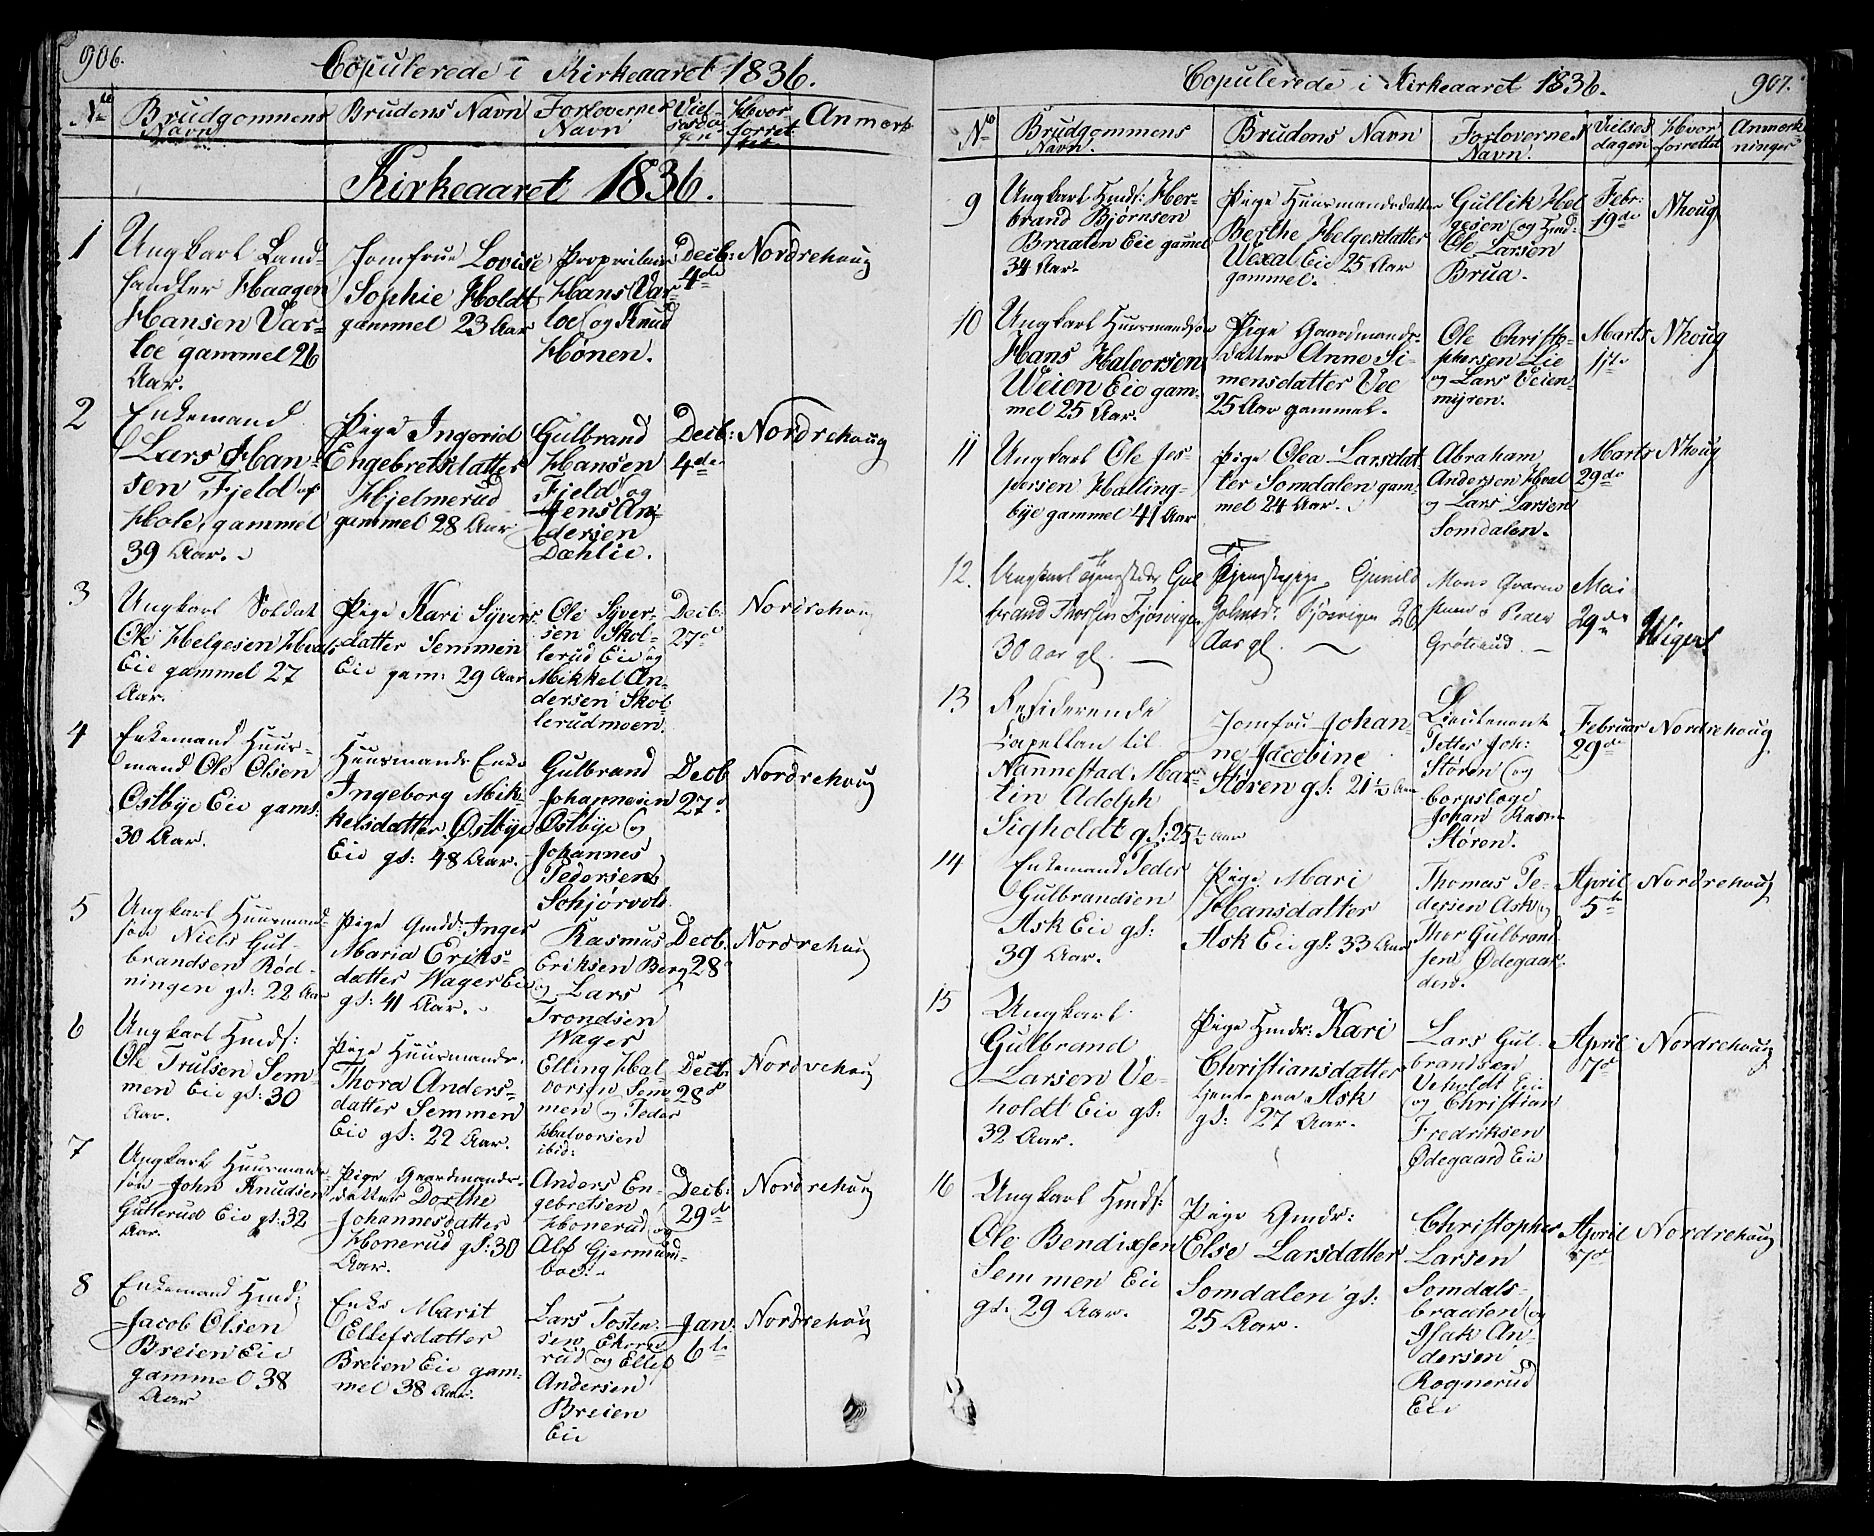 906.
Copulerede i Kirkeaaret 1836.
No
Brudgommens Navn
Brudens Navn
Forlovernes Navn
Hvor forret-tet
Anmerk
Kirkeaaret 1836.
1
Ungkarl Land-
handler Haagen
Hansen Var-
loe gammel 26
Aar.
Jomfrue Lovise
Sophie Holdt
gammel 23 Aar
Proprietair
Hans Var-
loe og Knud
Hønen.
Decb:
4de
Nordrehoug
2
Enkemand
Lars Han-
sen Fjeld af
Hole, gammel
39 Aar.
Pige Ingerid
Engebretsdatter
Hjelmerud
gammel 28 Aar
Gulbrand
Hansen
Fjeld og
Jens An-
dersen
Dæhlie.
Decb:
4de
Nordrehoug
3
Ungkarl Soldat
Ole Helgesen Hval
Eie gammel 27
Aar.
Pige Kari Syvers
datter Semmen
Eie gam: 29 Aar
Ole Syver-
sen Skol-
lerud Eie og
Mikkel An-
dersen Skol-
lerudmoen.
Decb.
27d
Nordrehoug
4
Enkemand Huus-
mand Ole Olsen
Østbye Eie gaml:
30 Aar.
Huusmands Enke
Ingeborg Mik-
kelsdatter Østbye
Eie gl: 48 Aar.
Gulbrand
Johannesen
Østbye og
Johannes
Pedersen
Schjørvold
Decb
27d
Nordrehoug
5
Ungkarl Huusmand-
søn Niels Gul-
brandsen Rød-
ningen gl: 22 Aar
Pige Gmdd: Inger
Maria Eriks-
datter Wager Eie
gl: 41 Aar.
Rasmus
Eriksen Berg
og Lars
Trondsen
Wager
Decb.
28d
Nordrehoug
6
Ungkarl Hmds:
Ole Trulsen Sem-
men Eie gl: 30
Aar.
Pige Huusmands-
Thora Anders-
datter Semmen
Eie gl: 22 Aar.
Elling Hal-
vorsen Sem-
men og Peder
Halvorsen
ibid:
Decb:
28d
Nordrehoug
7
Ungkarl Huusmands-
søn John Knudsen
Gutterud Eie gl: 32
Aar.
Pige Gaardmands-
datter Dorthe
Johannesdatter
Honerud gl: 30
Aar.
Anders En-
gebretsen
Honerud og
Alf Gjermund-
boe.
Decb:
29de
Nordrehoug
8
Enkemand Hmd:
Jacob Olsen
Breien Eie
gammel 38
Aar
Enke Marit
Ellefsdatter
Breien Eie gam-
mel 38 Aar.
Lars Tosten-
sen Ekorne
rud og Ellef
Andersen
Breien
Eie
Jan:
6te
Nordrehoug
Copulerede i Kirkeaaret 1836.
907.
No
Brudgommens Navn.
Brudens Navn
Forlovernes Navn.
Vielses dagen
Hvor forrettet
Anmerk-ninger
9
Ungkarl Hmds: Her-
brand Bjørnsen
Braaten Eie gammel
34 Aar.
Pige Huusmandsdatter
Berthe Helgesdatter
Vexal Eie 25 Aar
gammel.
Gullik Hel
gesen og Hmd:
Ole Larsen
Brua.
Febr:
19de
Nhoug
10
Ungkarl Huusmandsøn
Hans Halvorsen
Weien Eie gam-
mel 25 Aar.
Pige Gaardmands-
datter Anne Si-
mensdatter Vee
25 Aar gammel.
Ole Christo-
phersen Lie
og Lars Veien-
myren.
Marts
Nhoug
11
Ungkarl Ole Jes-
persen Halling-
bye gammel 41 Aar
Pige Olea Larsdat
ter Somdalen gam-
mel 24 Aar.
Abraham
Andersen Hval
og Lars Larsen
Somdalen.
Marts
29de
Nhoug
12.
Ungkarl Tjenestedr Gul
brand Thorsen Fjøsvigen
30 Aar gl.
Tjenestepige Gunild
Fjøsvigen 26
Aar gl.
Mons
Peder
Grøtiaud.
Mai
29de
Wiger
13
Residerende
Capellan til
Nannestad Mar-
tin Adolph
Sigholdt gl: 25½ Aar
Jomfru Johan-
ne Jacobine
Støren gl: 21½ Aar
Lieutenant
Petter Joh:
Støren og
Corpslæge
Johan Rasm
Støren.
Februar
29de
Nordrehoug
14
Enkemand Peder
Gulbrandsen
Ask Eie gl:
39 Aar.
Pige Mari
Hansdatter
Ask Eie gl: 33 Aar
Thomas Pe-
dersen Ask og
Thor Gulbrand
sen Ødegaar-
den.
April
5te
Nordrehoug
15
Ungkarl
Gulbrand
Larsen Ve-
holdt Eie gl:
32 Aar.
Pige Hmdr: Kari
Christiansdatter
tjener paa Ask
gl: 27 Aar.
Lars Gul-
brandsen
Veholdt Eie
og Christian
Fredriksen
Ødegaard Eie
April
17d
Nordrehoug
16
Ungkarl Hmds:
Ole Bendixsen
Semmen Eie
gl. 29 Aar.
Pige Gmdr:
Else Larsdatter
Somdalen gl:
25 Aar.
Christopher
Larsen
Somdals-
braaten og
Isak An-
dersen
Rognerud
Eie
April
17d
Nordrehoug